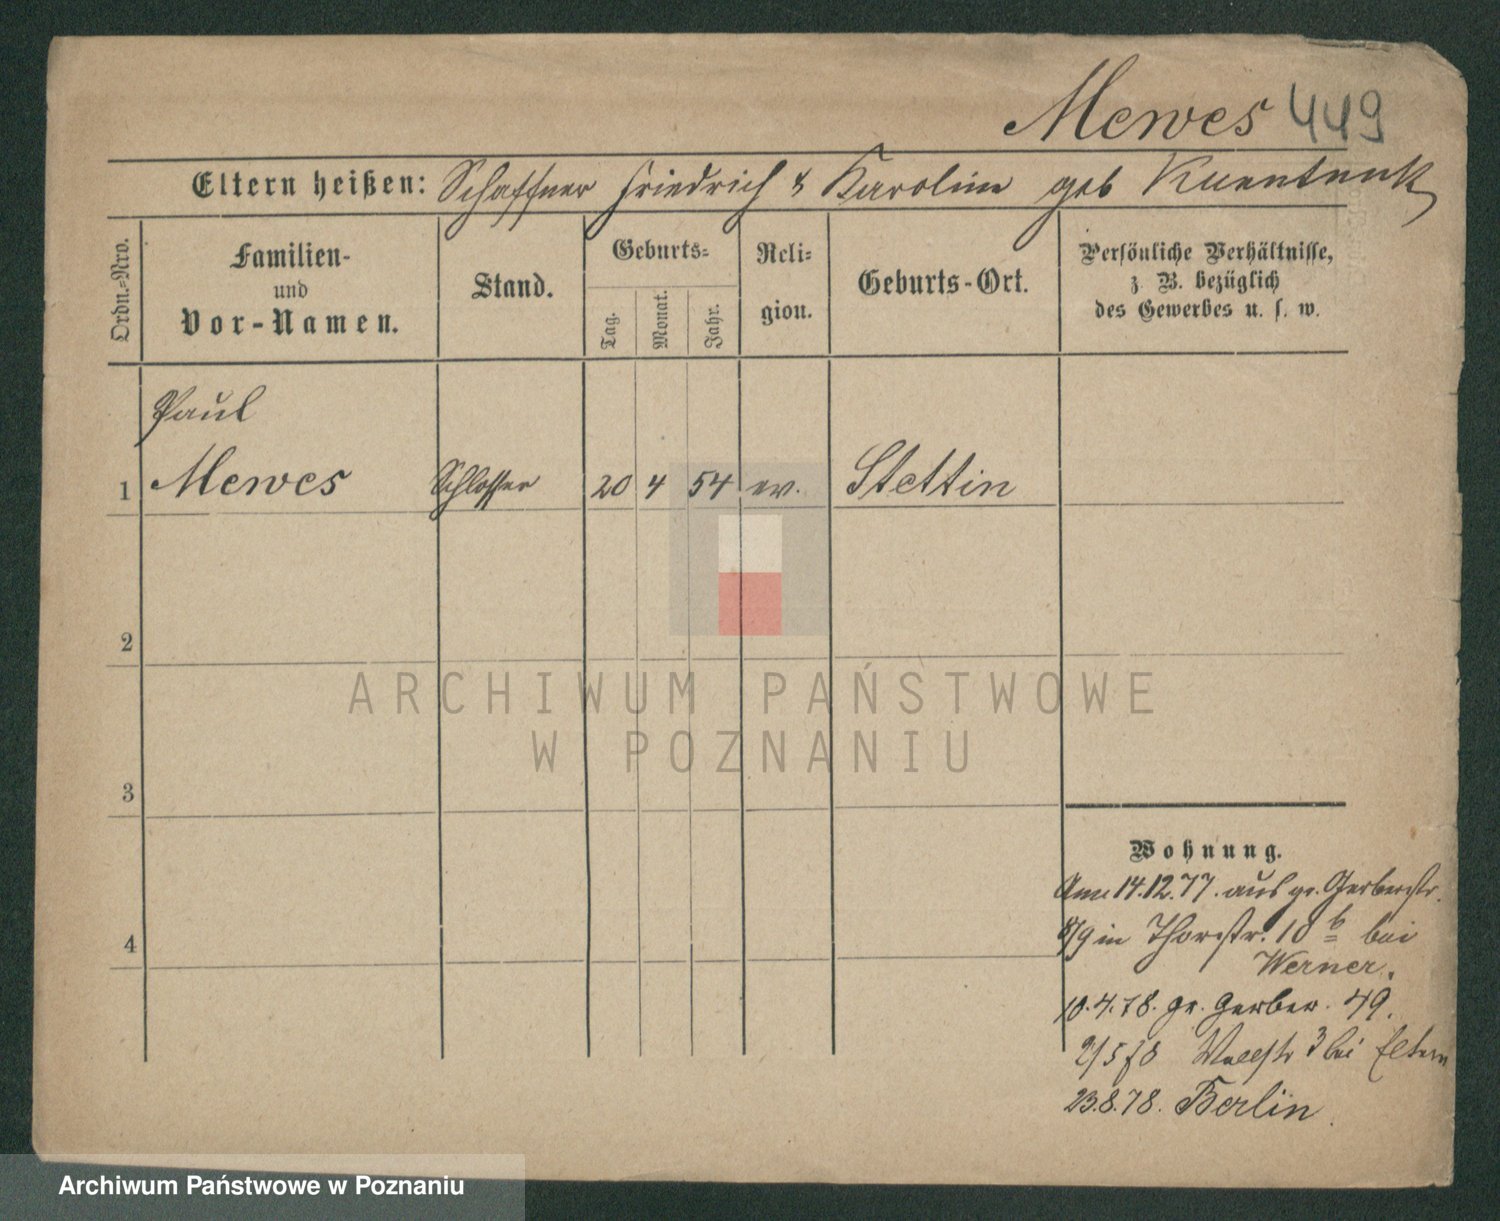 Mewes 449
Eltern heißen: Schaffner Friedrich & Karoline geb
Ordn.=Nro.
Familien-
und
Vor-Namen.
Stand.
Geburts=
Tag.
Monat.
Jahr.
Reli=
gion.
Geburts-Ort.
Persönliche Verhältnisse,
z. B. bezüglich
des Gewerbes u. s. w.
Paul
1 Mewes Schlosser 20 4 54 ev. Stettin
2
3
4
Wohnung.
14.12.77. aus gr. Gerberstr.
8/9 in Thorstr. 10 b bei
Werner.
10.4.78. gr. Gerber. 49.
2/5 78 Wallstr 3 bei Eltern
23.8.78. Berlin
ARCHIWUM PAŃSTWOWE
W POZNANIU
Archiwum Państwowe w Poznaniu